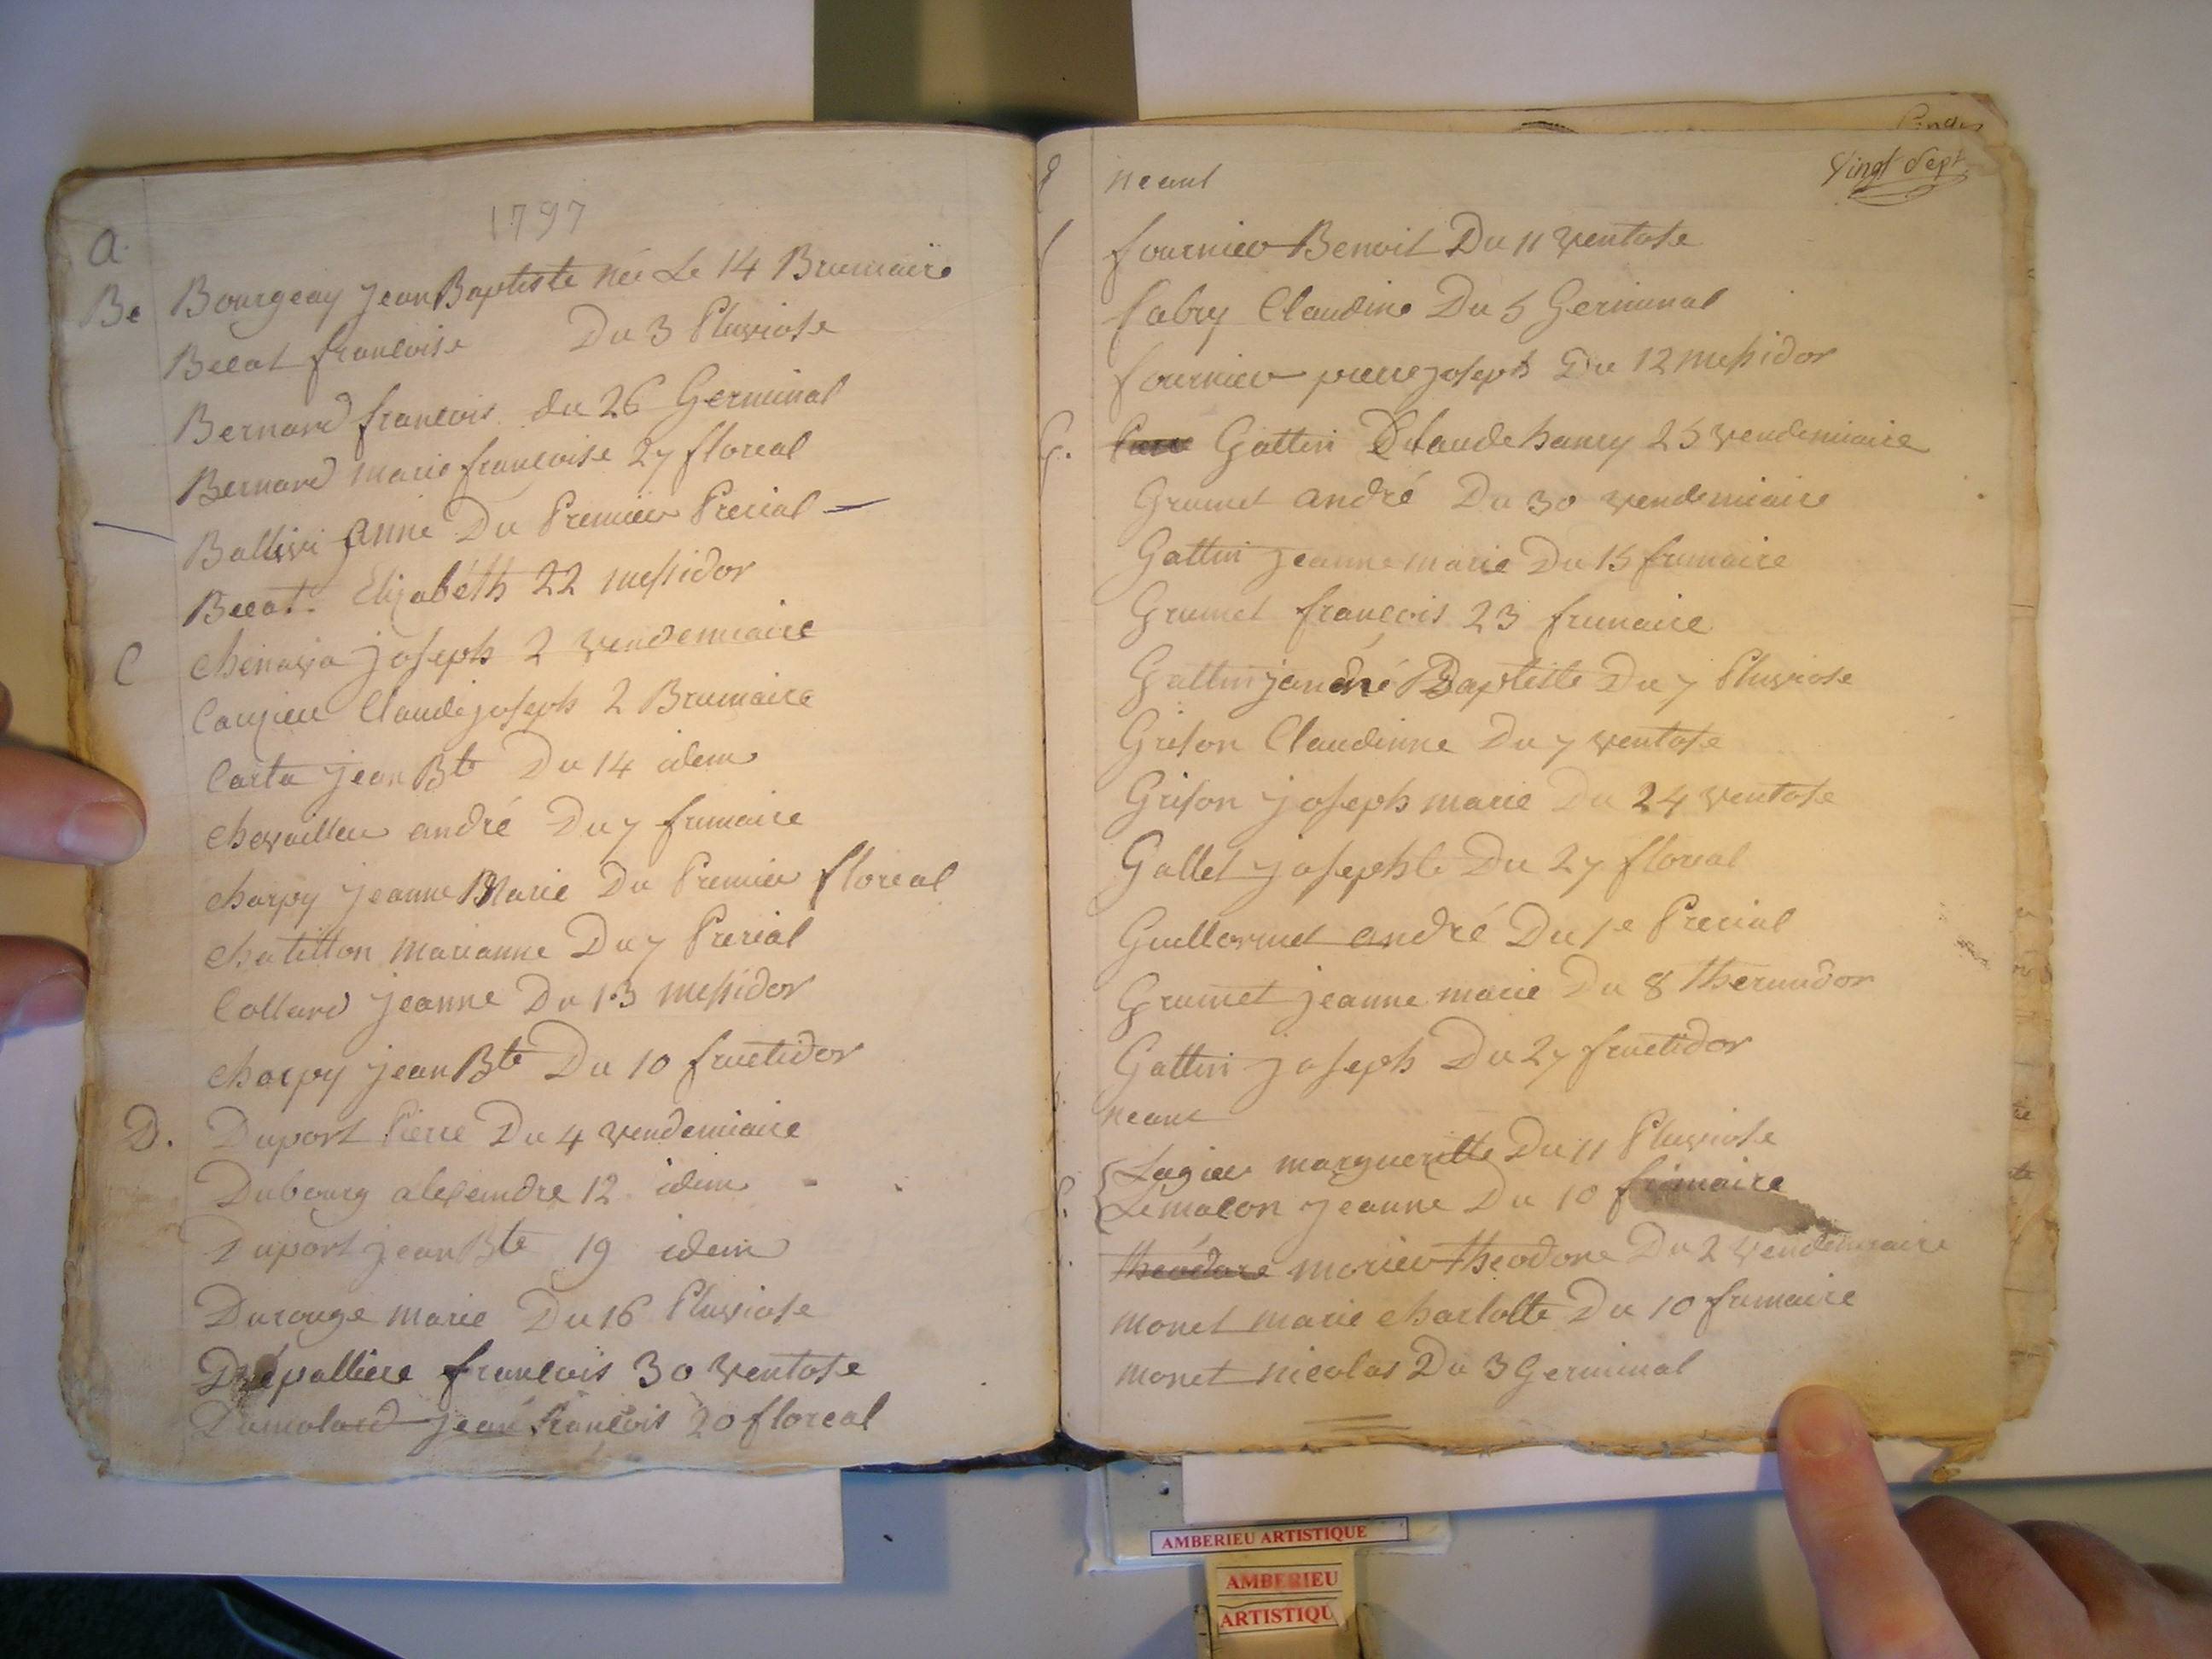 1797
a.
Be Bourgeay jean Baptiste né Le 14 Brumaire
Becat francoise Du 3 Pluviose
Bernard francois du 26 Germinal
Bernard marie francoise 27 floreal
Ballivi anne Du Premier Prerial
Becat Elizabéth 22 messidor
C chenavja joseph 2 vendemiaire
Claude joseph 2 Brumaire
Carta jean Bte Du 14 idem
chevailler andré Du 7 frimaire
charpy jeanne Marie Du Premier floreal
chatillon marianne Du 7 Prerial
Collard jeanne Du 13 messidor
charpy jean Bte Du 10 fructidor
D. Duport Pierre Du 4 vendemiaire
Dubourg alexendre 12 idem
Duport jean Bte 19 idem
Durouge marie Du 16 Pluviose
Drépalliere francois 30 ventose
Dumolard jean francois 20 floreal
Vingt Sept
neant
f fournier Benoit Du 11 ventose
fabry Claudine Du 5 Germinal
fournier pierre joseph Du 12 messidor
G. Gattin Claude 25 vendemiaire
Grumet andré Du 30 vendemiaire
Gattin jeanne marie Du 15 frimaire
Grumet francois 23 frimaire
Gattin Baptiste Du 7 Pluviose
Grison Claudinne Du 7 ventose
Grison joseph marie Du 24 ventose
Gallet josephte Du 27 floreal
Guillermet andré Du 1e Prerial
Grumet jeanne marie Du 8 thermidor
Gattin joseph Du 27 fructidor
neant
Lagier margueritte Du 11 Pluviose
Lemacon jeanne Du 10 frimaire
theodore morier theodore Du 2 vendemiaire
monet marie charlotte Du 10 frimaire
monet nicolas Du 3 Germinal
AMBERIEU ARTISTIQUE
AMBERIEU
ARTISTIQU